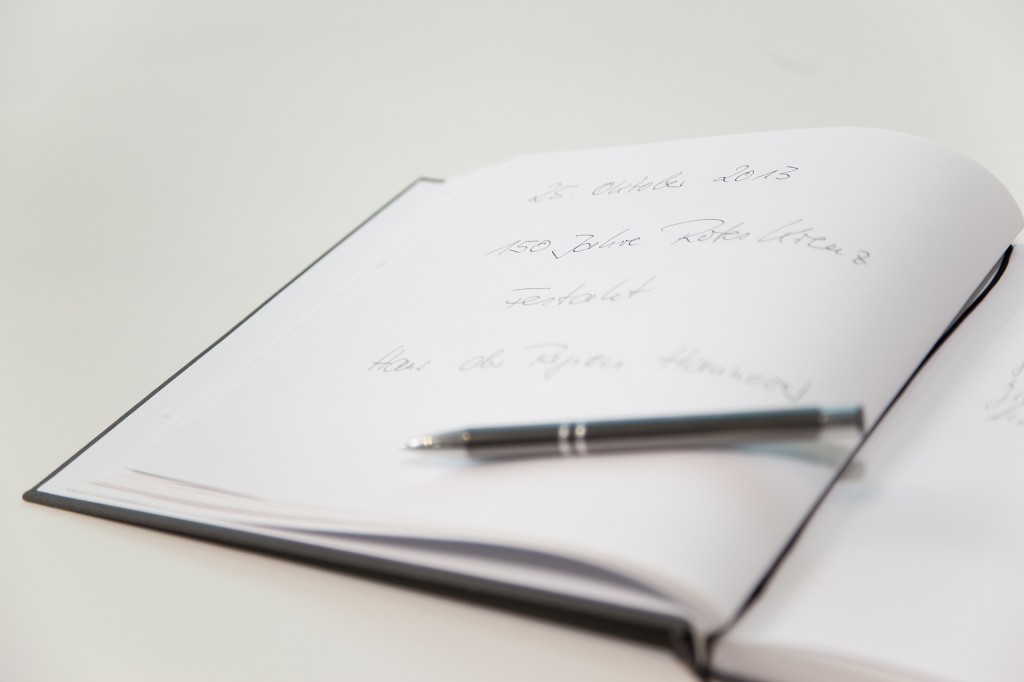 25 Oktober 2013
150 Jahre Rotes Kreuz
Festakt
Haus der Region Hannover